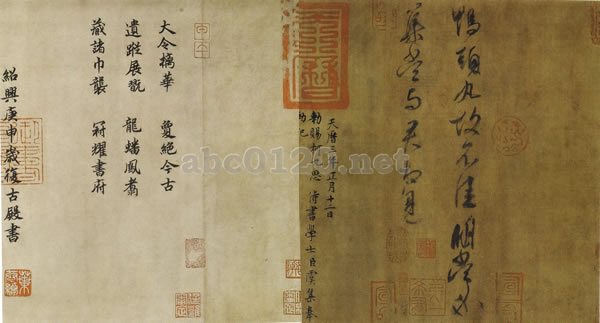 鴨頭丸故不佳明當必
集當與君相見
天曆三年正月十二日
勑賜柯九思 侍書學士臣虞集奉
勑記
大令摛華 夐絕今古
遺蹤展翫 龍蟠鳳翥
藏諸巾襲 冠耀書府
紹興庚申歲復古殿書
abc0120.net